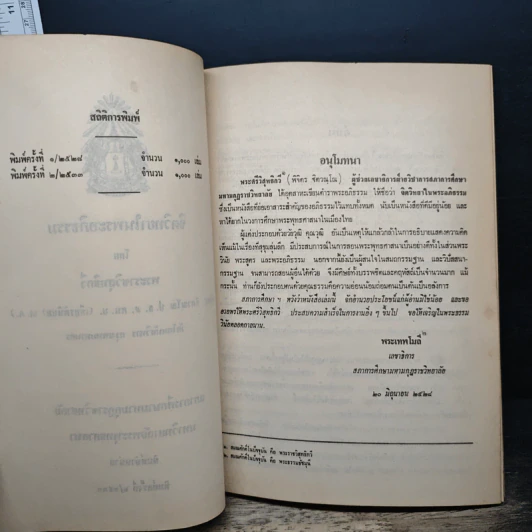 สถิติการพิมพ์
พิมพ์ครั้งที่ ๑/๒๕๒๘ จำนวน ๑,๐๐๐ เล่ม
พิมพ์ครั้งที่ ๒/๒๕๓๓ จำนวน ๑,๐๐๐ เล่ม
อนุโมทนา
พระศรีวิสุทธิกวี (พิจิตร ฐิตวณฺโณ) ผู้ช่วยเลขาธิการฝ่ายวิชาการสภาการศึกษา
มหามกุฏราชวิทยาลัย ได้อุตสาหะเขียนตำราพระอภิธรรม ให้ชื่อว่า จิตวิทยาในพระอภิธรรม
ซึ่งเป็นหนังสือที่ย่อเอาสาระสำคัญของอภิธรรมไว้แทบทั้งหมด นับเป็นหนังสือที่ดีมีอยู่น้อย และ
หาได้ยากในวงการศึกษาพระพุทธศาสนาในเมืองไทย
ผู้แต่งประกอบด้วยวัยวุฒิ คุณวุฒิ อันเป็นเหตุให้แกล้วกล้าในการอธิบายแสดงความคิด
เห็นแม้ในเรื่องที่สุขุมลุ่มลึก มีประสบการณ์ในการสอนพระพุทธศาสนาเป็นอย่างดีทั้งในส่วนพระ
วินัย พระสูตร และพระอภิธรรม นอกจากนี้ยังเป็นผู้สนใจในสมถกรรมฐาน และวิปัสสนา-
กรรมฐาน จนสามารถสอนผู้อื่นได้ด้วย จึงมีศิษย์ทั้งบรรพชิตและคฤหัสถ์เป็นจำนวนมาก แม้
กระนั้น ท่านก็ยังประกอบตนด้วยคุณธรรมคือความอ่อนน้อมถ่อมตนเป็นต้นเป็นอลังการ
สภาการศึกษา ฯ หวังว่าหนังสือเล่มนี้ จักอำนวยประโยชน์แก่ผู้อ่านมิใช่น้อย และขอ
อวยพรให้พระศรีวิสุทธิกวี ประสบความสำเร็จในการงานยิ่ง ๆ ขึ้นไป ขอให้เจริญในพระธรรม
วินัยตลอดกาลนาน.
พระเทพโมลี
เลขาธิการ
สภาการศึกษามหามกุฏราชวิทยาลัย
๒๐ มิถุนายน ๒๕๒๘
๑. สมณศักดิ์ในปัจจุบัน คือ พระราชวิสุทธิกวี
๒. สมณศักดิ์ในปัจจุบัน คือ พระธรรมชัชมุนี